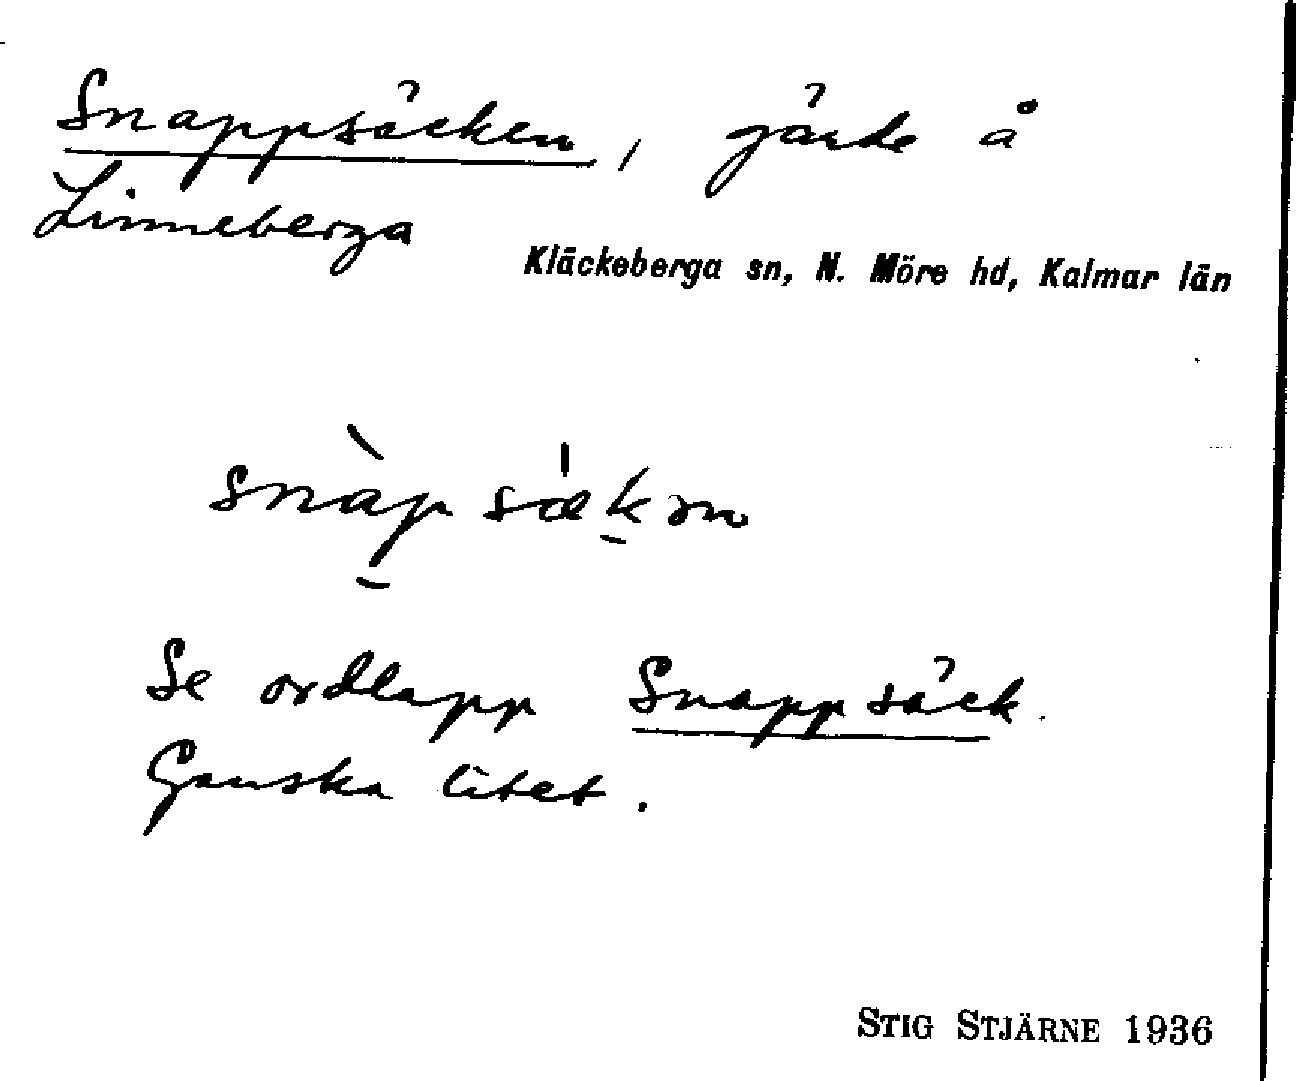 Snappsäcken, gärde å
Linneberga
Kläckeberga sn, N. Möre hd, Kalmar län
snàp sækən
Se ordlapp Snappsäck.
Ganska litet.
STIG STJÄRNE 1936